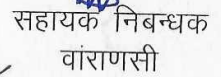 सहायक निबन्धक
वांराणसी